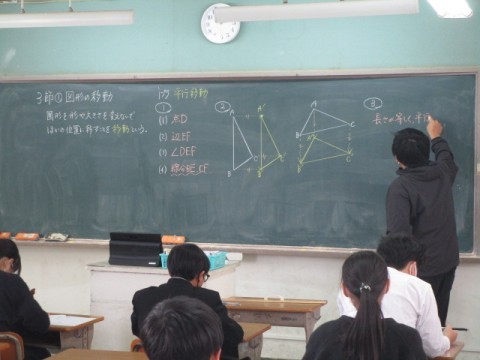 3節① 図形の移動
図形を形や大きさを変えないで
ほかの位置に移すことを移動という。
平行移動
①
(1) 点D
(2) 辺EF
(3) ∠DEF
(4) 線分BE, CF
②
A
A'
B
C
B'
C'
A
B
C
A'
B'
C'
③
長さが等しく平行